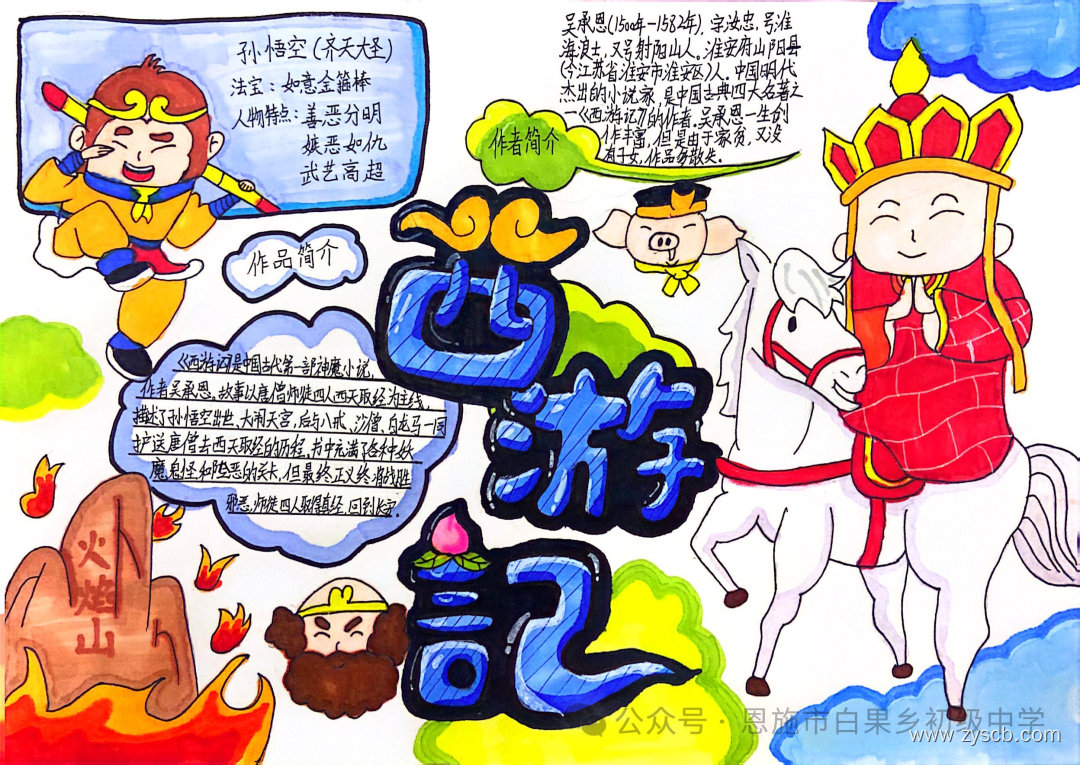 孙悟空(齐天大圣)
法宝：如意金箍棒
人物特点：善恶分明
嫉恶如仇
武艺高超
吴承恩(1500年-1582年), 字汝忠, 号淮
海浪士, 又号射阳山人。淮安府山阳县
(今江苏省淮安市淮安区)人。中国明代
杰出的小说家, 是中国古典四大名著之
一《西游记》的作者, 吴承恩一生创
作丰富, 但是由于家贫, 又没
有子女, 作品多散失。
作者简介
作品简介
《西游记》是中国古代第一部神魔小说,
作者吴承恩。故事以唐僧师徒四人西天取经为主线,
描述了孙悟空出世、大闹天宫, 后与八戒、沙僧、白龙马一同
护送唐僧去西天取经的历程, 书中充满了各种妖
魔鬼怪和险恶的关卡, 但最终正义终将战胜
邪恶, 师徒四人取得真经, 回到长安。
西游記
火焰山
公众号·恩施市白果乡初级中学
www.zyscb.com